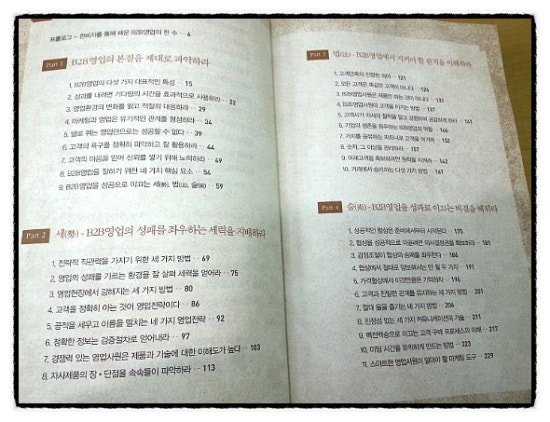 프롤로그 - 한비자를 통해 배운 B2B영업의 한 수 ·· 4
Part 1 B2B영업의 본질을 제대로 파악하라
1. B2B영업의 다섯 가지 대표적인 특성 ·· 15
2. 성과를 내려면 기다림의 시간을 효과적으로 사용하라 ·· 22
3. 영업환경의 변화를 읽고 적절히 대응하라 ·· 29
4. 마케팅과 영업은 유기적인 관계를 형성하라 ·· 34
5. 발로 뛰는 영업만으로는 성공할 수 없다 ·· 39
6. 고객의 욕구를 정확히 파악하고, 잘 활용하라 ·· 44
7. 고객의 마음을 얻어 신뢰를 쌓기 위해 노력하라 ·· 49
8. B2B영업을 잘하기 위한 네 가지 핵심 요소 ·· 54
9. B2B영업을 성공으로 이끄는 세(勢), 법(法), 술(術) ·· 59
Part 2 세(勢) - B2B영업의 성패를 좌우하는 세력을 지배하라
1. 전략적 직관력을 가지기 위한 세 가지 방법 ·· 69
2. 영업의 성패를 가르는 환경을 잘 살펴 세력을 얻어라 ·· 75
3. 영업현장에서 강해지는 세 가지 방법 ·· 80
4. 고객을 정확히 아는 것이 영업전략이다 ·· 86
5. 공적을 세우고 이름을 떨치는 네 가지 영업전략 ·· 92
6. 정확한 정보는 검증절차로 얻어내라 ·· 97
7. 경쟁력 있는 영업사원은 제품과 기술에 대한 이해도가 높다 ·· 103
8. 자사제품의 장 · 단점을 속속들이 파악하라 ·· 113
Part 3 법(法) - B2B영업에서 지켜야 할 원칙을 이해하라
1. 고객만족의 진정한 의미 ·· 121
2. 모든 고객은 똑같은 고객이 아니다 ·· 127
3. B2B영업사원은 제품만 파는 것이 아니다 ·· 132
4. B2B영업사원이 고객을 이기는 방법 ·· 137
6. 기업의 생존을 좌우하는 B2B영업의 역할 ·· 144
7. 가치를 공유하는 파트너로 고객을 여겨라 ·· 152
10. 가격에서 승리하는 다섯 가지 방법 ·· 167
Part 4 술(術) - B2B영업을 성과로 이끄는 비결을 배워라
1. 성공적인 협상은 준비에서부터 시작된다 ·· 175
2. 협상을 성공적으로 이끌려면 의사결정권을 확보하라 ·· 181
3. 감정조절이 협상의 승패를 좌우한다 ·· 184
4. 협상에서 절대로 양보해서는 안 될 두 가지 ·· 187
6. 고객과 친밀한 관계를 유지하는 세 가지 방법 ·· 201
7. 접대 술을 즐기는 네 가지 방법 ·· 206
8. 진정성 있는 세 가지 커뮤니케이션의 기술 ·· 211
9. 백전백승으로 이끄는 고객 구매 프로세스의 이해 ·· 217
10. 미팅 시간을 유익하게 만드는 방법 ·· 223
11. 스마트한 영업사원이 알아야 할 마케팅 도구 ·· 229